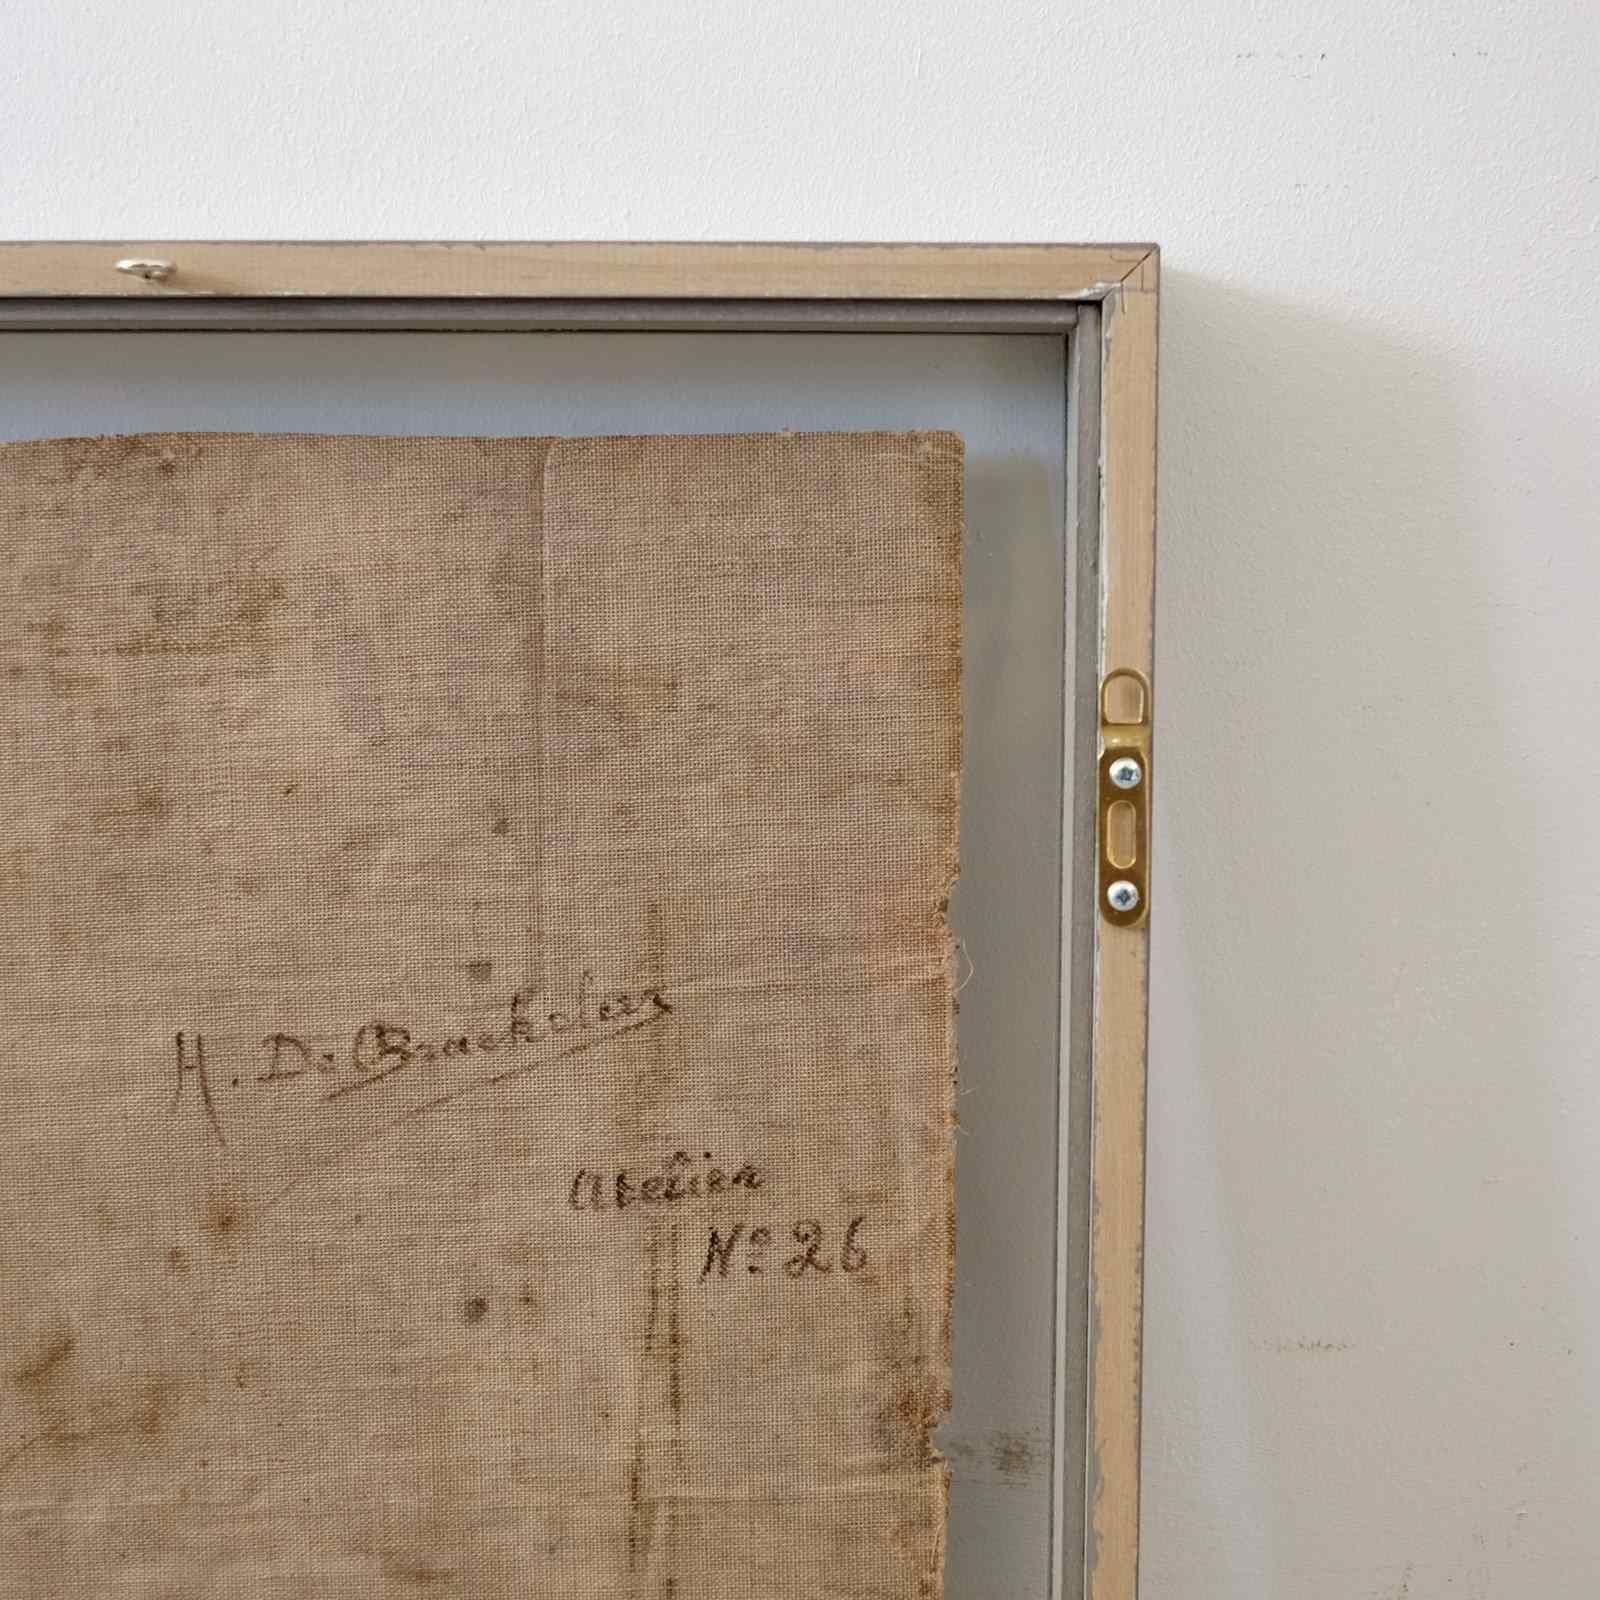 H. De Braekeleer
Atelier
No 26